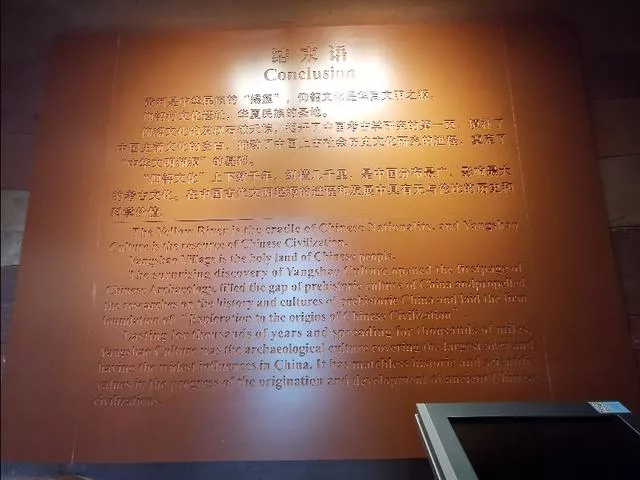 结束语
Conclusion
黄河是中华民族的“摇篮”，仰韶文化是华夏文明之源。
仰韶村文化遗址，华夏民族的圣地。
仰韶文化的发现石破天惊，掀开了中国考古学研究的第一页，填补了
中国史前文化的空白，推动了中国上古社会历史文化研究的进程，奠定了
“中华文明探源”的基础。
“仰韶文化”上下数千年，纵横几千里，是中国分布最广、影响最大
的考古文化。在中国古代文明起源的进程和发展中具有无与伦比的历史和
科学价值。
The Yellow River is the cradle of Chinese Nationality, and Yangshao
Culture is the resource of Chinese Civilization.
Yangshao Village is the holy land of Chinese people.
The surprising discovery of Yangshao Culture opened the firstpage of
Chinese Archaeology, filled the gap of prehistoric culture of China andpropelled
the researches on the history and cultures of prehistoric China and laid the firm
foundation of “Exploration to the origins of Chinese Civilization”.
Lasting for thousands of years and spreading for thousands of miles,
Yangshao Culture was the archaeological culture covering the largest area and
having the widest influences in China. It has matchless historic and scientific
values in the progress of the origination and development of ancient Chinese
civilizations.